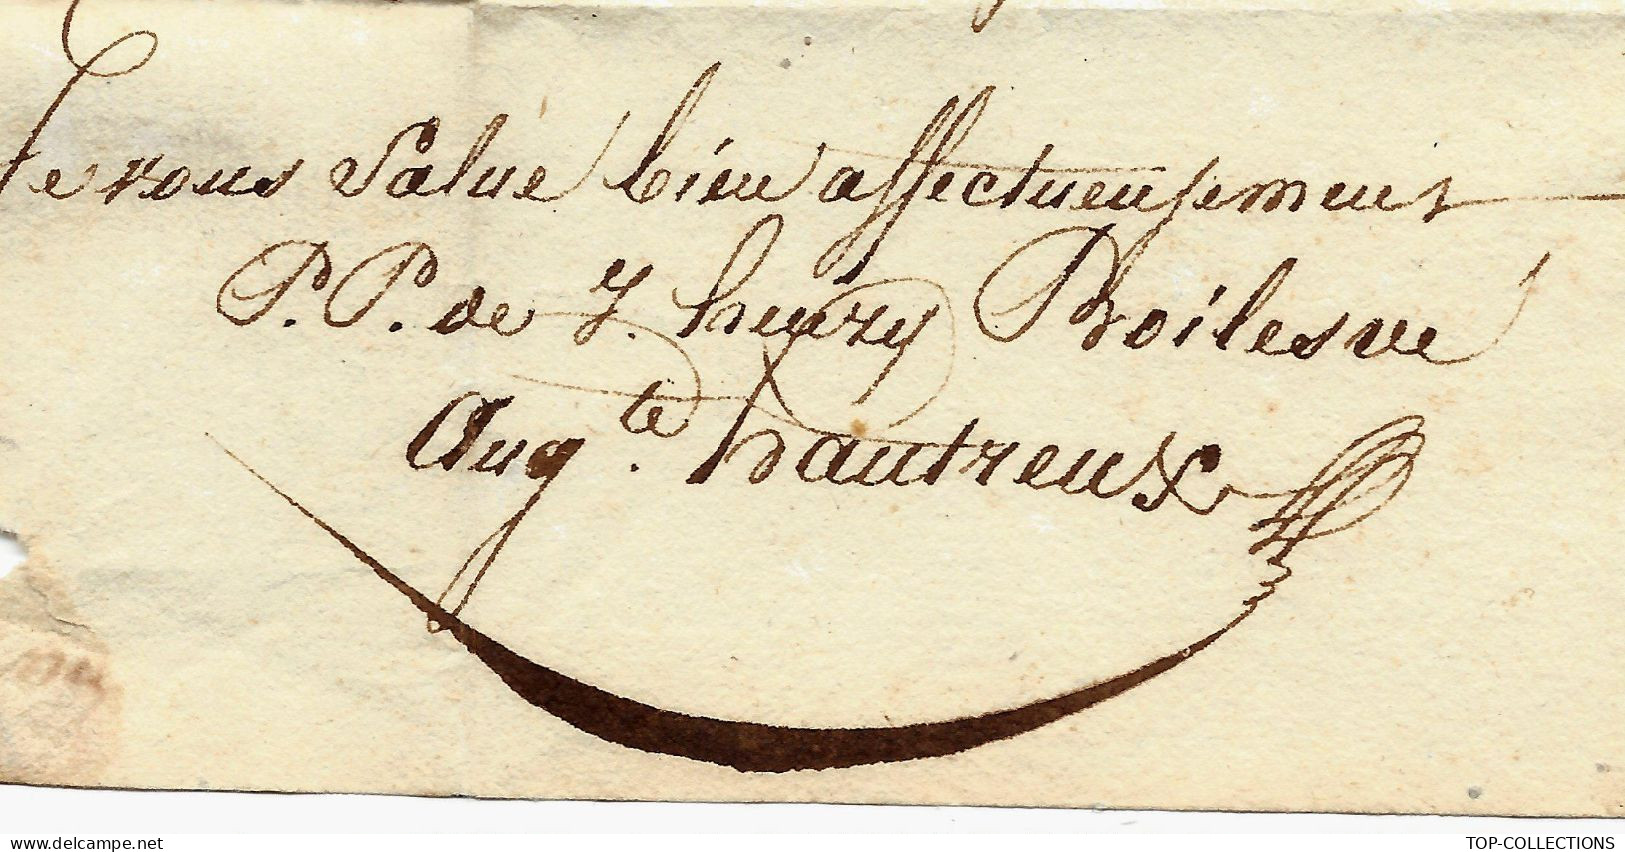 Je vous Salue bien affectueusement
P. P. de J. henry Boilesve
Aug.te hautreux
TOP-COLLECTIONS